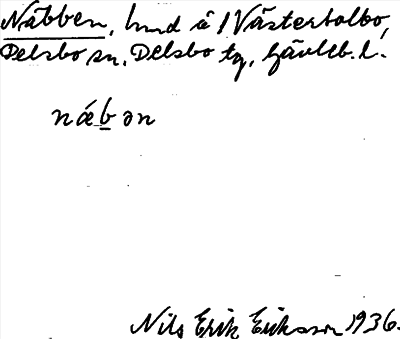 Näbben, hmd å Västertolbo,
Delsbo sn. Delsbo tg, Gävleb. l.
näbən
Nils Erik Eriksson 1936.